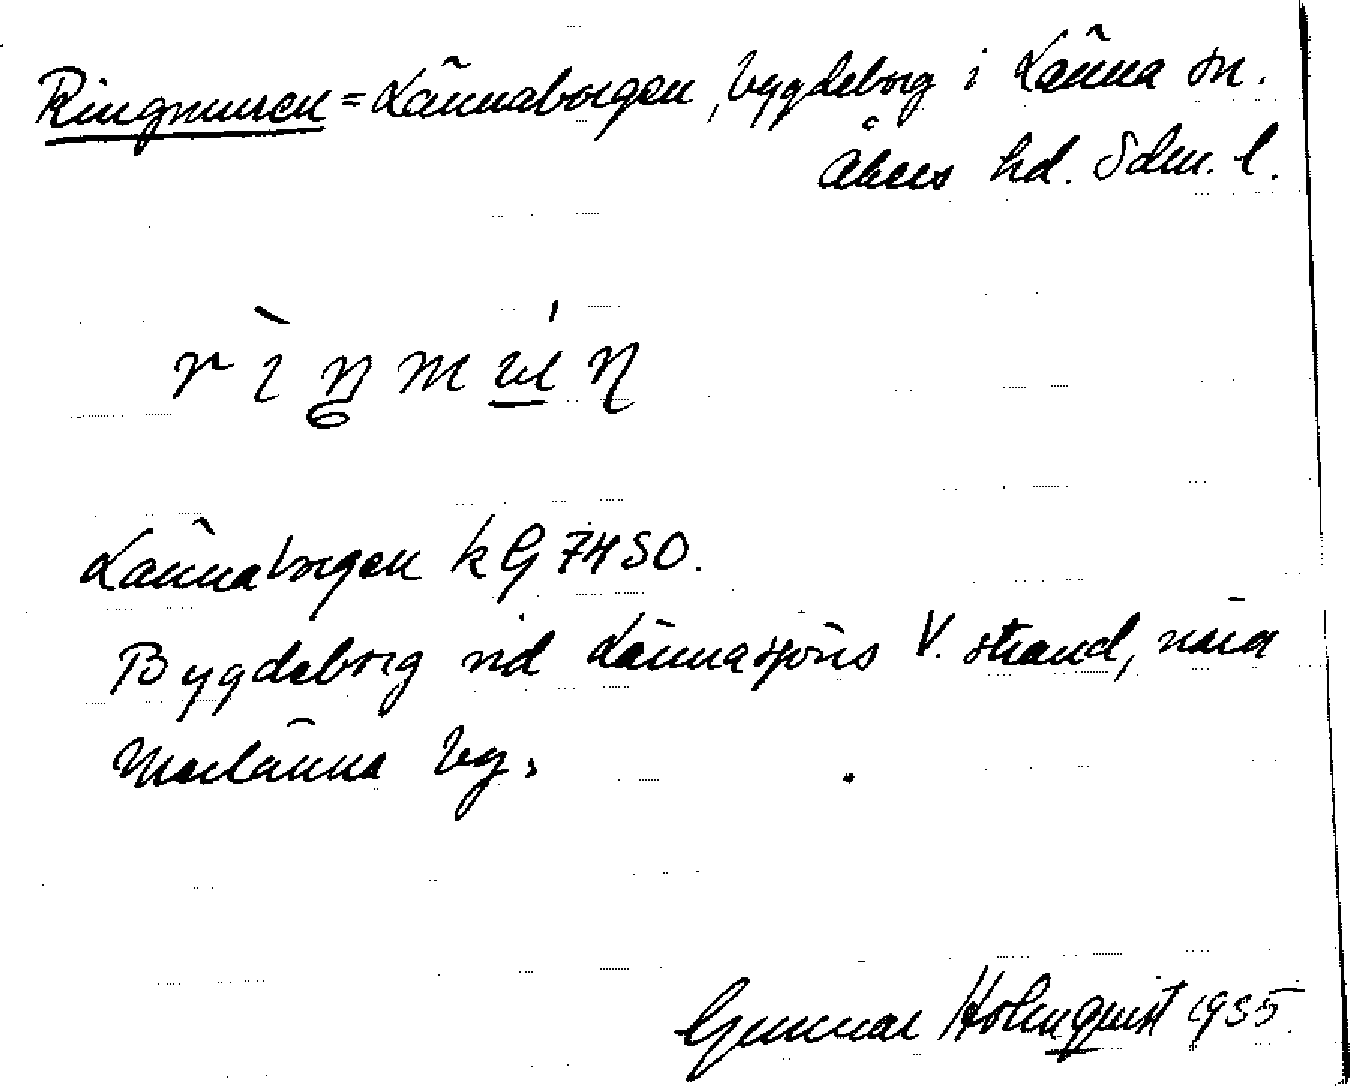 Ringmuren = Lännaborgen, bygdeborg i Länna sn.
Åkers hd. Sdm. l.
Lännaborgen kG 7450.
Bygdeborg vid Lännasjöns V. strand, nära
Marlänna by.
Gunnar Holmquist 1935